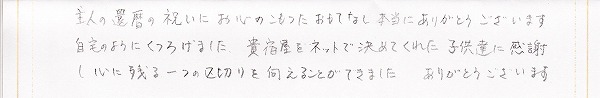 主人の還暦の祝いにお心のこもったおもてなし本当にありがとうございます
自宅のようにくつろげました 貴宿屋をネットで決めてくれた子供達に感謝
し心に残る一つの区切りを向えることができました ありがとうございます